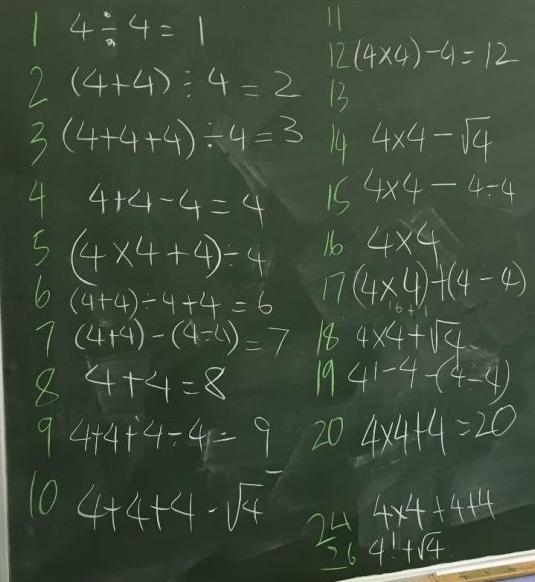 1 4 ÷ 4 = 1
2 (4+4) ÷ 4 = 2
3 (4+4+4) ÷ 4 = 3
4 4+4-4 = 4
5 (4×4+4) ÷ 4
6 (4+4) ÷ 4+4 = 6
7 (4+4) - (4÷4) = 7
8 4+4 = 8
9 4+4+4÷4 = 9
10 4+4+4-√4
11
12 (4×4)-4 = 12
13
14 4×4-√4
15 4×4-4÷4
16 4×4
17 (4×4)+(4÷4)
18 4×4+√4
19 4!-4-(4÷4)
20 4×4+4 = 20
24 4×4+4+4
26 4!+√4